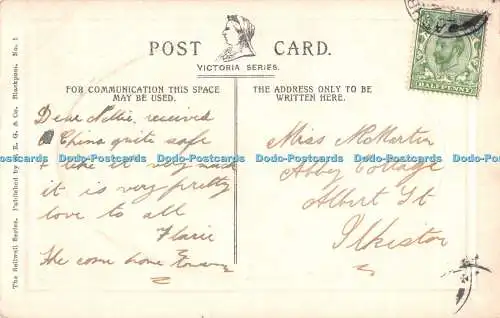 POST CARD.
VICTORIA SERIES.
FOR COMMUNICATION THIS SPACE
MAY BE USED.
THE ADDRESS ONLY TO BE
WRITTEN HERE.
HALFPENNY
Dear Nellie received
China quite safe
& like it very much
it is very pretty
love to all
Florrie
come home
Miss McMartin
Abbey Cottage
Albert St
Ilkeston
The Reliwell Series. Published by E. G. & Co. Blackpool. No. 1
Dodo-Postcards Dodo-Postcards Dodo-Postcards Dodo-Postcards Dodo-Postcards